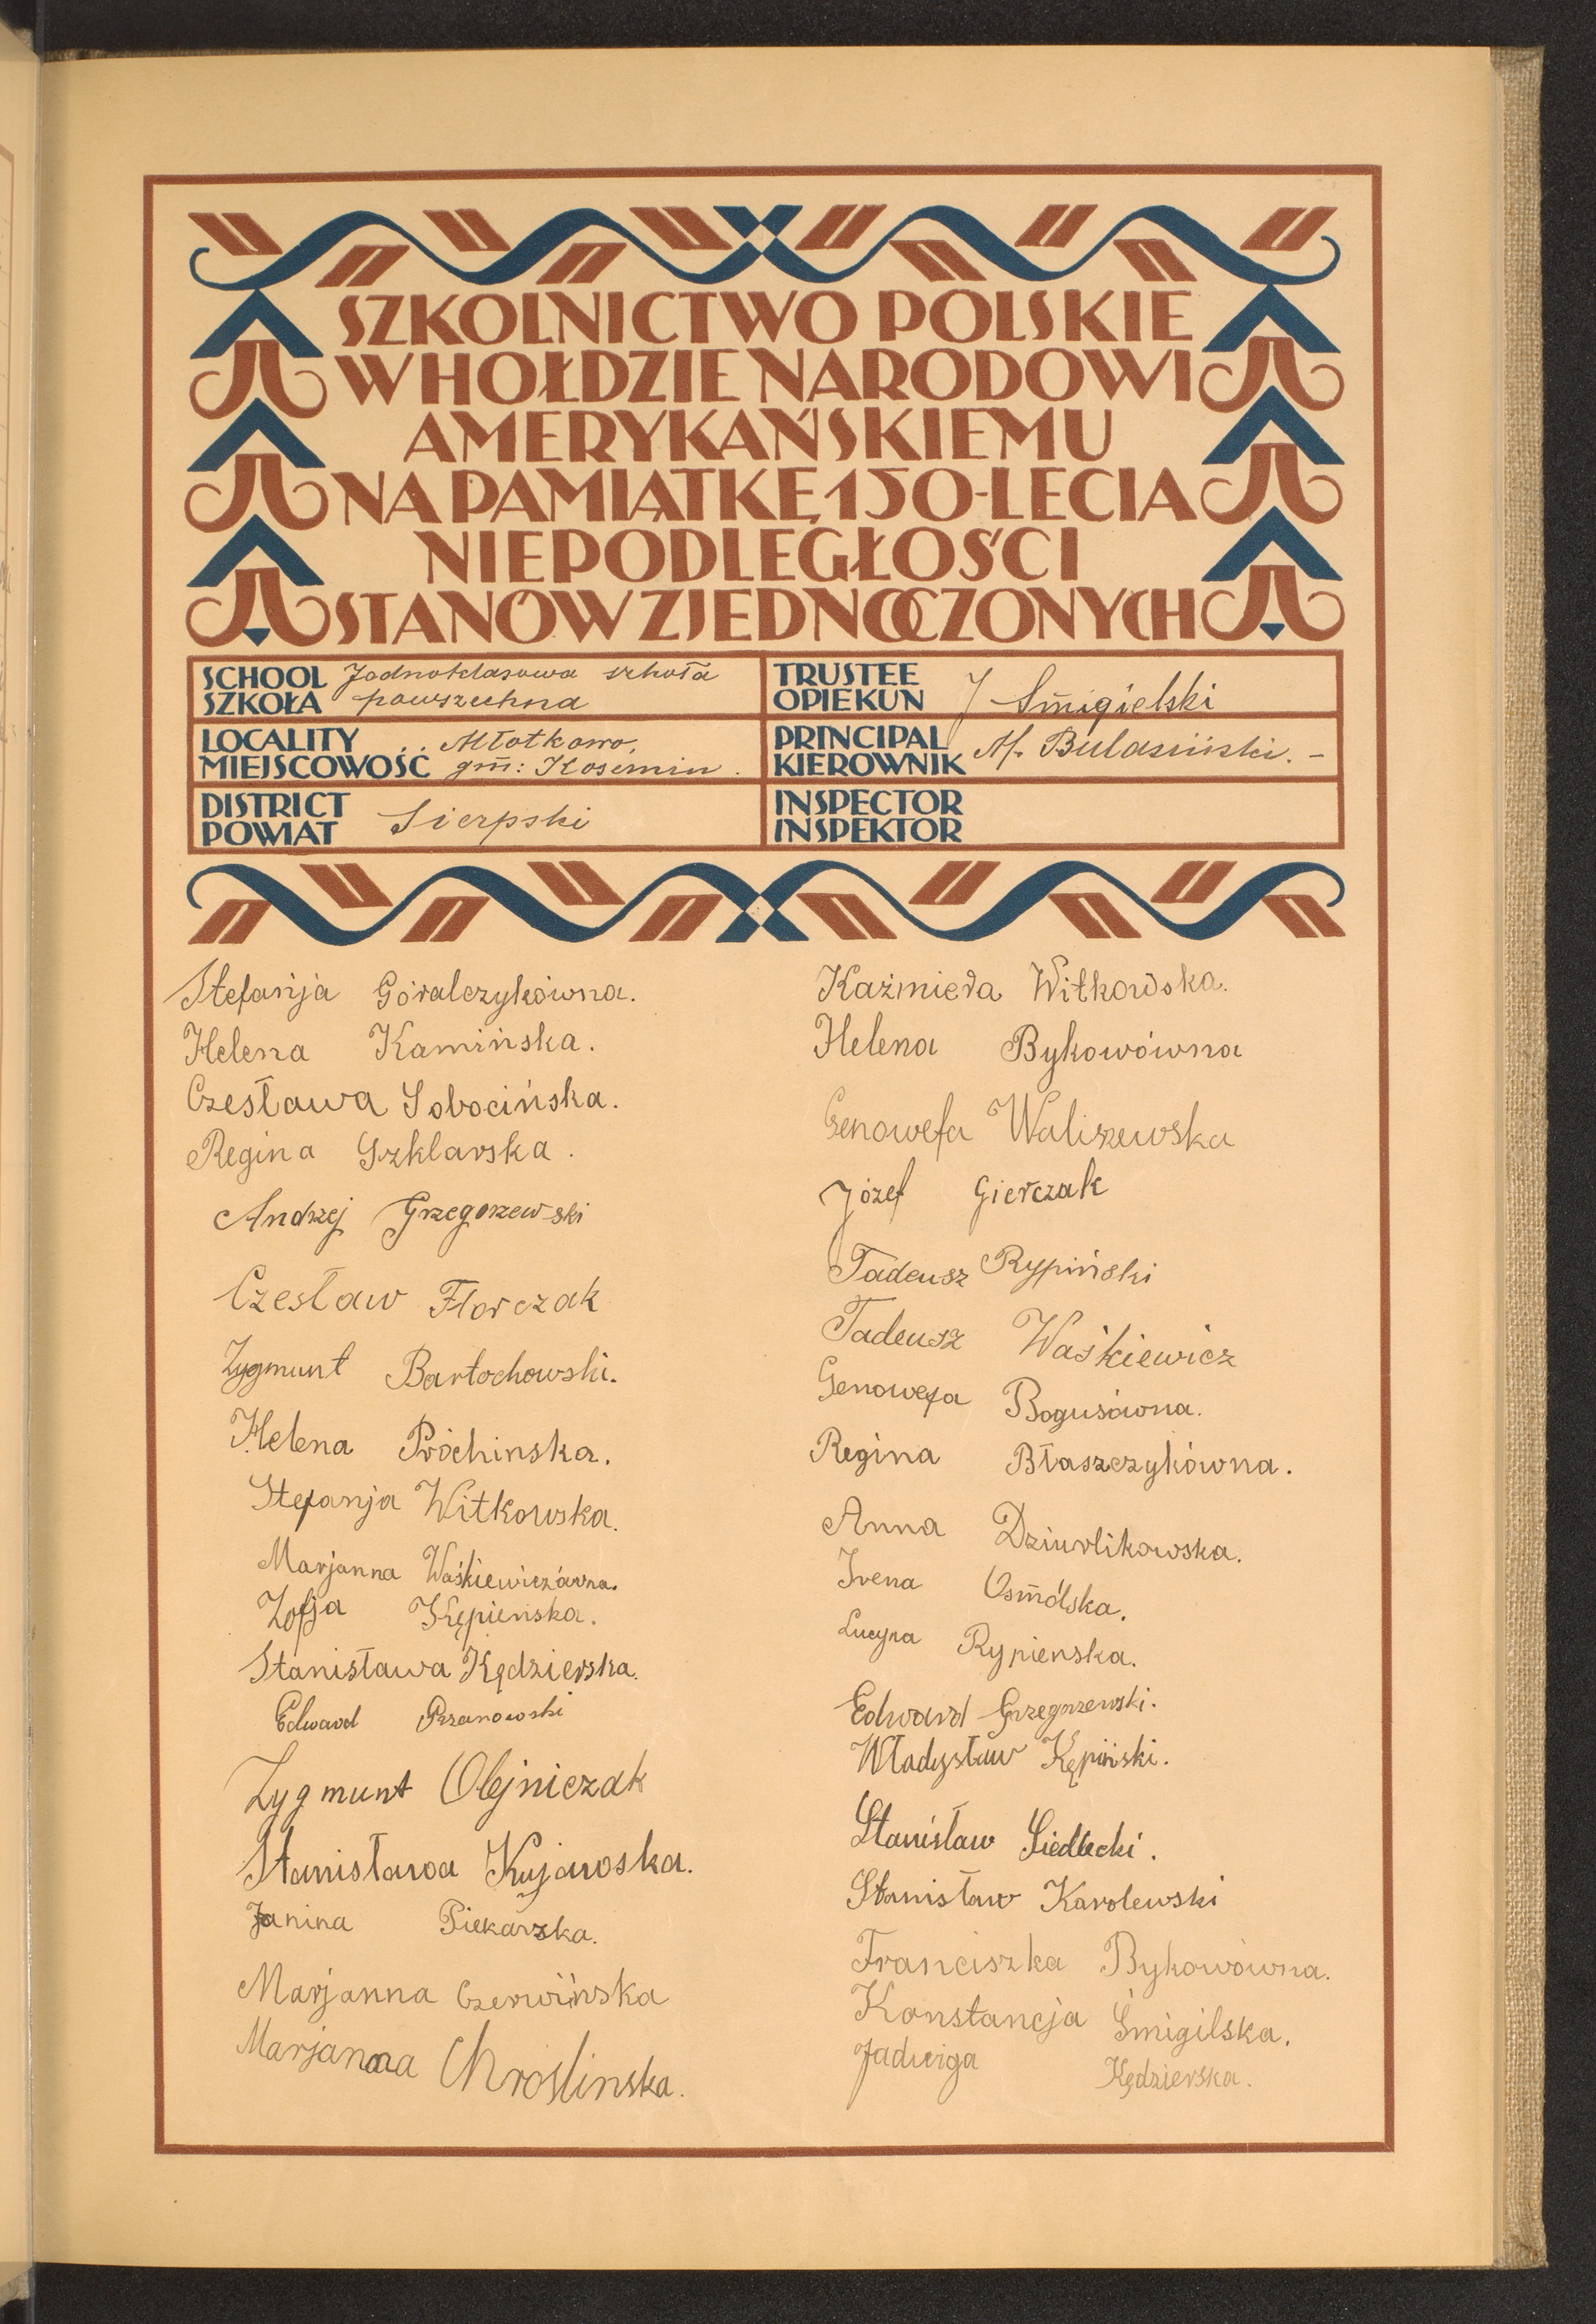 SZKOLNICTWO POLSKIE
W HOŁDZIE NARODOWI
AMERYKAŃSKIEMU
NA PAMIĄTKĘ 150-LECIA
NIEPODLEGŁOŚCI
STANÓW ZJEDNOCZONYCH
SCHOOL
SZKOŁA
Jednoklasowa szkoła
powszechna
TRUSTEE
OPIEKUN
J Śmigielski
LOCALITY
MIEJSCOWOŚĆ
Młotkowo,
gm: Kosemin.
PRINCIPAL
KIEROWNIK
M. Bulasiński. -
DISTRICT
POWIAT
Sierpski
INSPECTOR
INSPEKTOR
Stefanja Góralczykówna.
Helena Kamińska.
Czesława Sobocińska.
Regina Szklarska.
Andrzej Grzegorzewski
Czesław Florczak
Zygmunt Bartochowski.
Helena Próchinska.
Stefanja Witkowska.
Marjanna Waśkiewiczówna.
Zofja Kępienska.
Stanisława Kędzierska.
Edward Przanowski
Zygmunt Olejniczak
Stanisława Kujawska.
Janina Piekarzka.
Marjanna Czerwińska
Marjanna Chroslinska.
Kaźmiera Witkowska.
Helena Bykowówna
Genowefa Waliszewska
Józef Gierczak
Tadeusz Rypiński
Tadeusz Waśkiewicz
Genowefa Bogusówna.
Regina Błaszczykówna.
Anna Dziurlikowska.
Irena Osmólska.
Lucyna Rypienska.
Edward Grzegorzewski.
Władysław Kępiński.
Stanisław Siedlecki.
Stanisław Karolewski
Franciszka Bykowówna.
Konstancja Śmigilska.
Jadwiga Kędzierska.